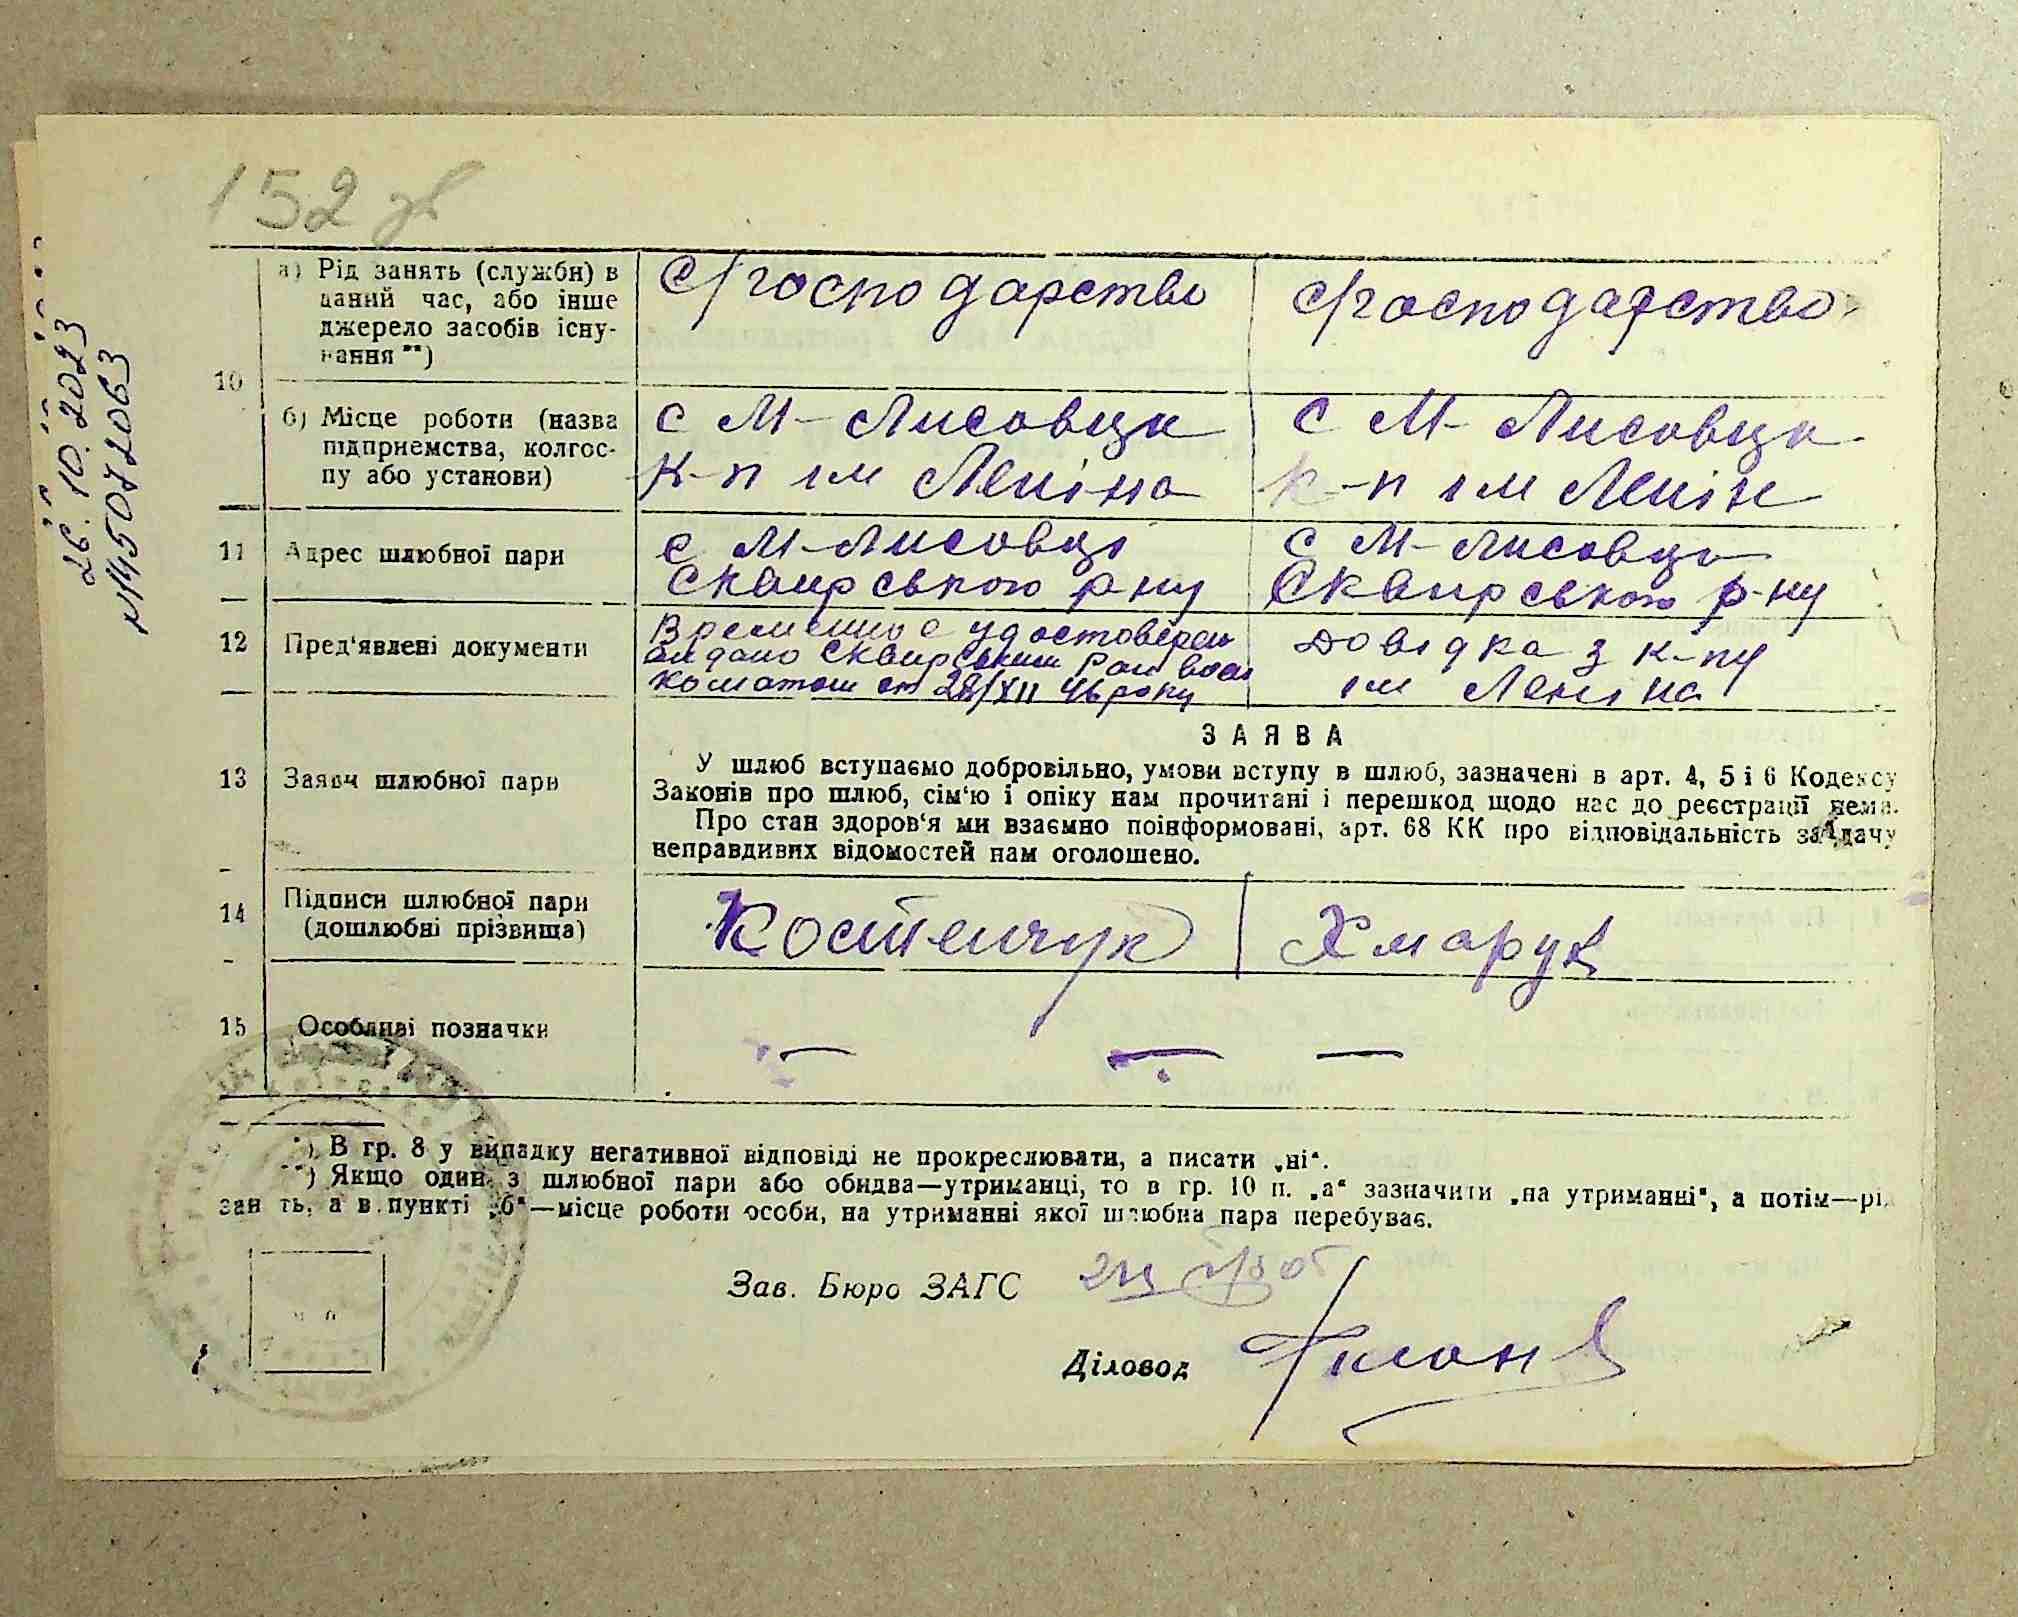 152 зв
26.10.2023
№ 145072063
10
а) Рід занять (служби) в
даний час, або інше
джерело засобів існу-
вання **)
С/господарство
С/господарство
б) Місце роботи (назва
підприємства, колгос-
пу або установи)
с М-Лисовцк
к-п ім Леніна
с М-Лисовцк
к-п ім Ленін
11
Адрес шлюбної пари
с М-Лисовці
Сквирського р-ну
с М-Лисовци
Сквирського р-ну
12
Пред'явлені документи
Временное удостоверен
видано Сквирським Рай воен
коматом от 28/XII 46 року
Довідка з к-пу
ім Леніна
13
Заяви шлюбної пари
ЗАЯВА
У шлюб вступаємо добровільно, умови вступу в шлюб, зазначені в арт. 4, 5 і 6 Кодексу
Законів про шлюб, сім'ю і опіку нам прочитані і перешкод щодо нас до реєстрації нема.
Про стан здоров'я ми взаємно поінформовані, арт. 68 КК про відповідальність за дачу
неправдивих відомостей нам оголошено.
14
Підписи шлюбної пари
(дошлюбні прізвища)
Костенчук
Хмарук
15
Особливі позначки
— — —
*) В гр. 8 у випадку негативної відповіді не прокреслювати, а писати „ні“.
**) Якщо один з шлюбної пари або обидва—утриманці, то в гр. 10 п. „а“ зазначити „на утриманні“, а потім—рід
занять, а в пункті „б“—місце роботи особи, на утриманні якої шлюбна пара перебуває.
Зав. Бюро ЗАГС
Діловод